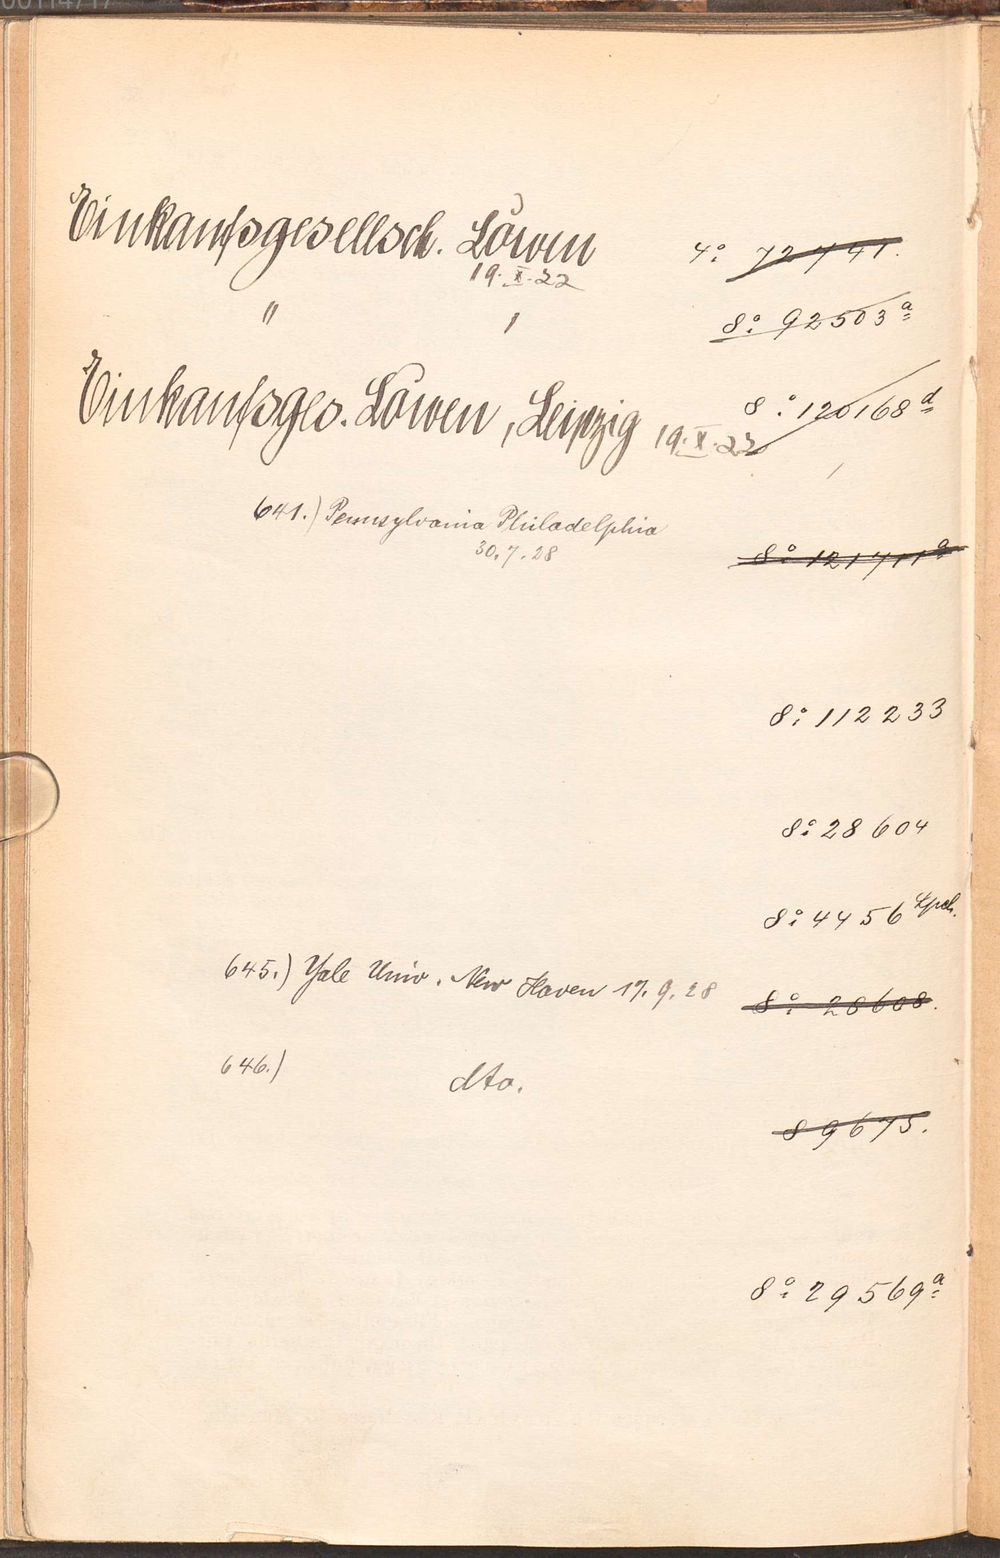 Einkaufsgesellsch. Löwen 4° 72741.
19.X.22
" " 8° 92503 a
Einkaufsges. Löwen, Leipzig 19.X.22 8° 120168 d
641.) Pennsylvania Philadelphia
30.7.28 8° 121711 a
8° 112233
8° 28604
8° 4456
645.) Yale Univ. New Haven 17.9.28 8° 28608.
646.) dto.
89675.
8° 29569 a